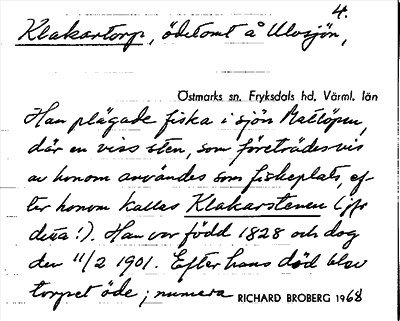 4.
Klakartorp, ödetomt å Ulvsjön,
Östmarks sn. Fryksdals hd. Värml. län
Han plägade fiska i sjön Mattöpen,
där en viss sten, som företrädesvis
av honom användes som fiskeplats, ef-
ter honom kallas Klakarstenen (jfr
detta!). Han var född 1828 och dog
den 11/2 1901. Efter hans död blev
torpet öde; numera RICHARD BROBERG 1968